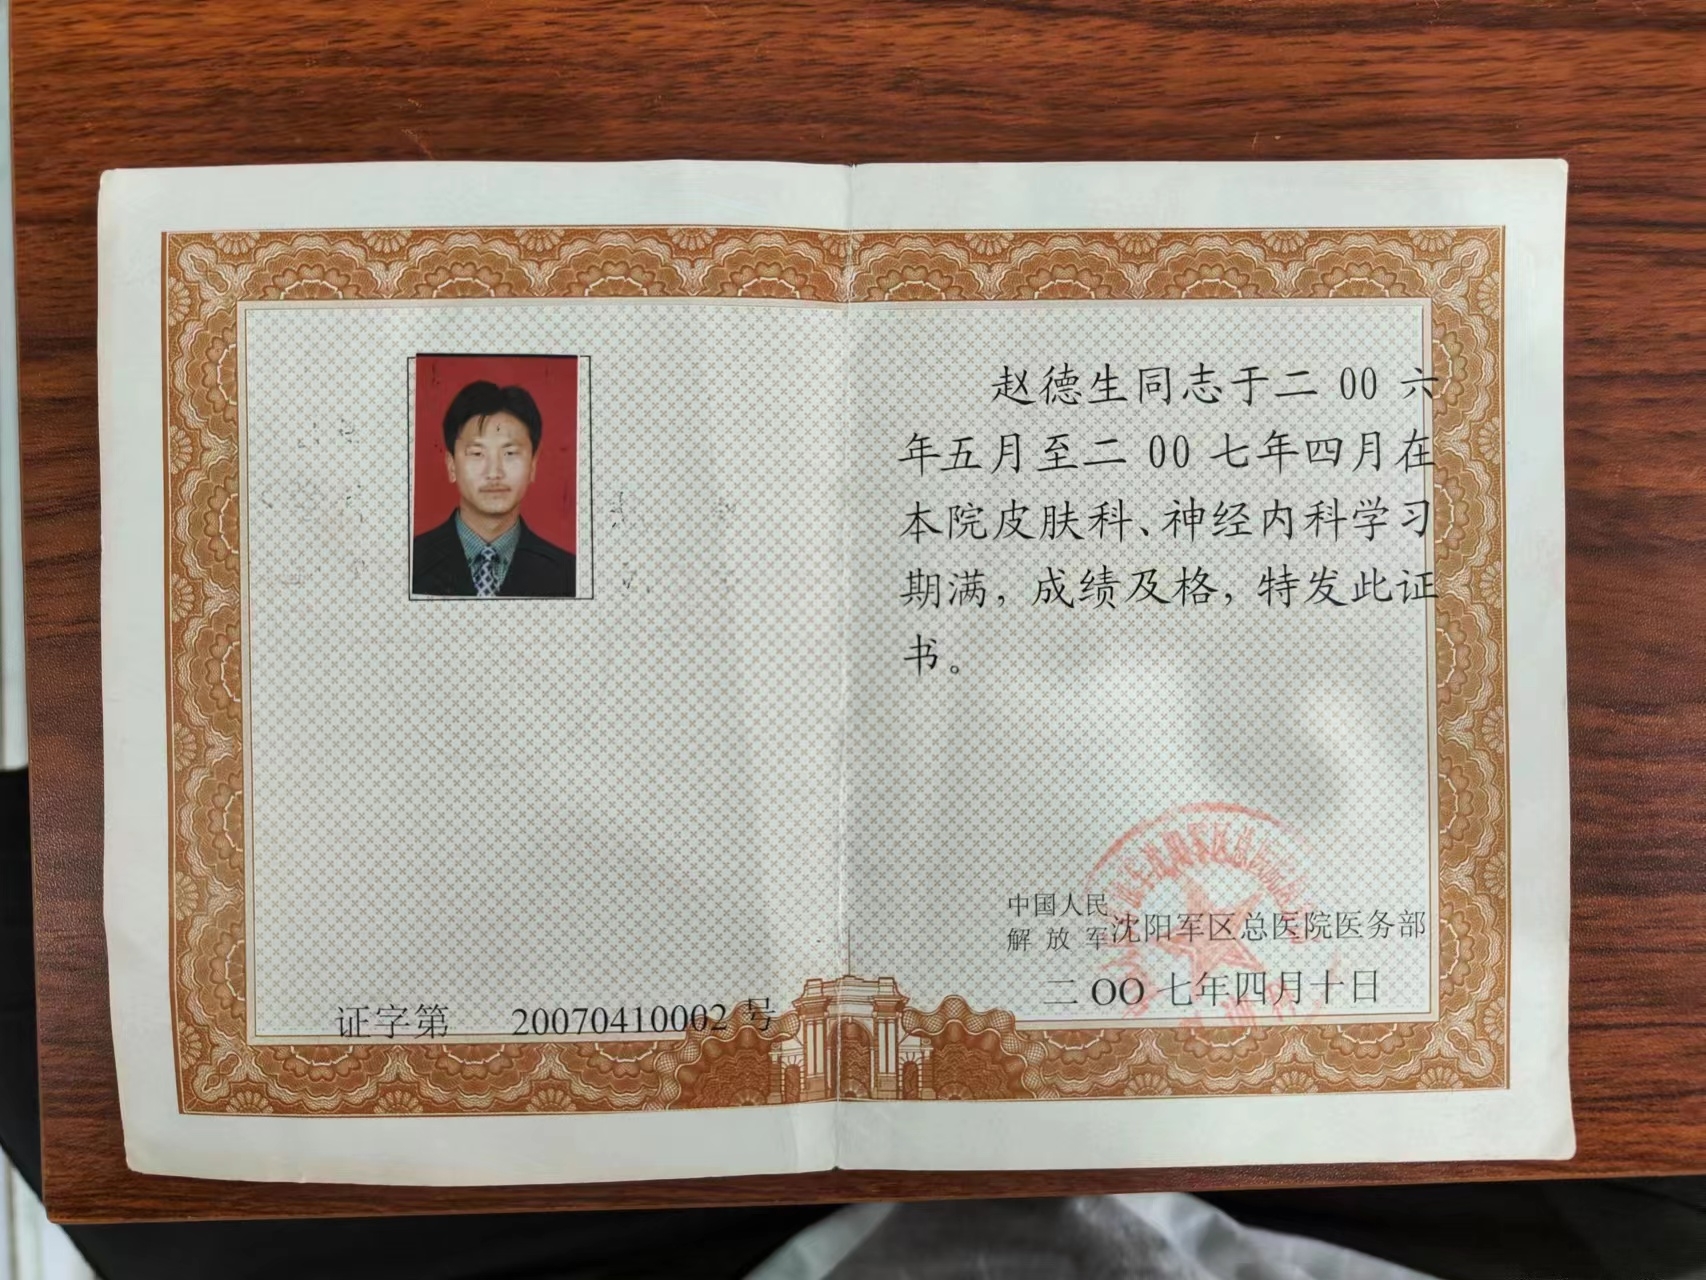 赵德生同志于二00六
年五月至二00七年四月在
本院皮肤科、神经内科学习
期满，成绩及格，特发此证
书。
中国人民
解放军沈阳军区总医院医务部
二OO七年四月十日
证字第 20070410002号